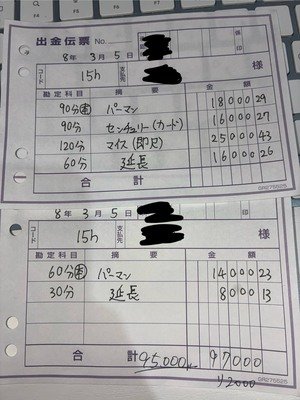 出金伝票 No.
8年 3月 5日
コード 15h 支払先 様
勘定科目 摘要 金額
90分 パーマン 18000 29
90分 センチュリー(カード) 16000 27
120分 マイス(即尺) 25000 43
60分 延長 16000 26
合計
GR275525
8年 3月 5日
コード 15h 支払先 様
勘定科目 摘要 金額
60分 パーマン 14000 23
30分 延長 8000 13
合計 95,000 97000
GR275525